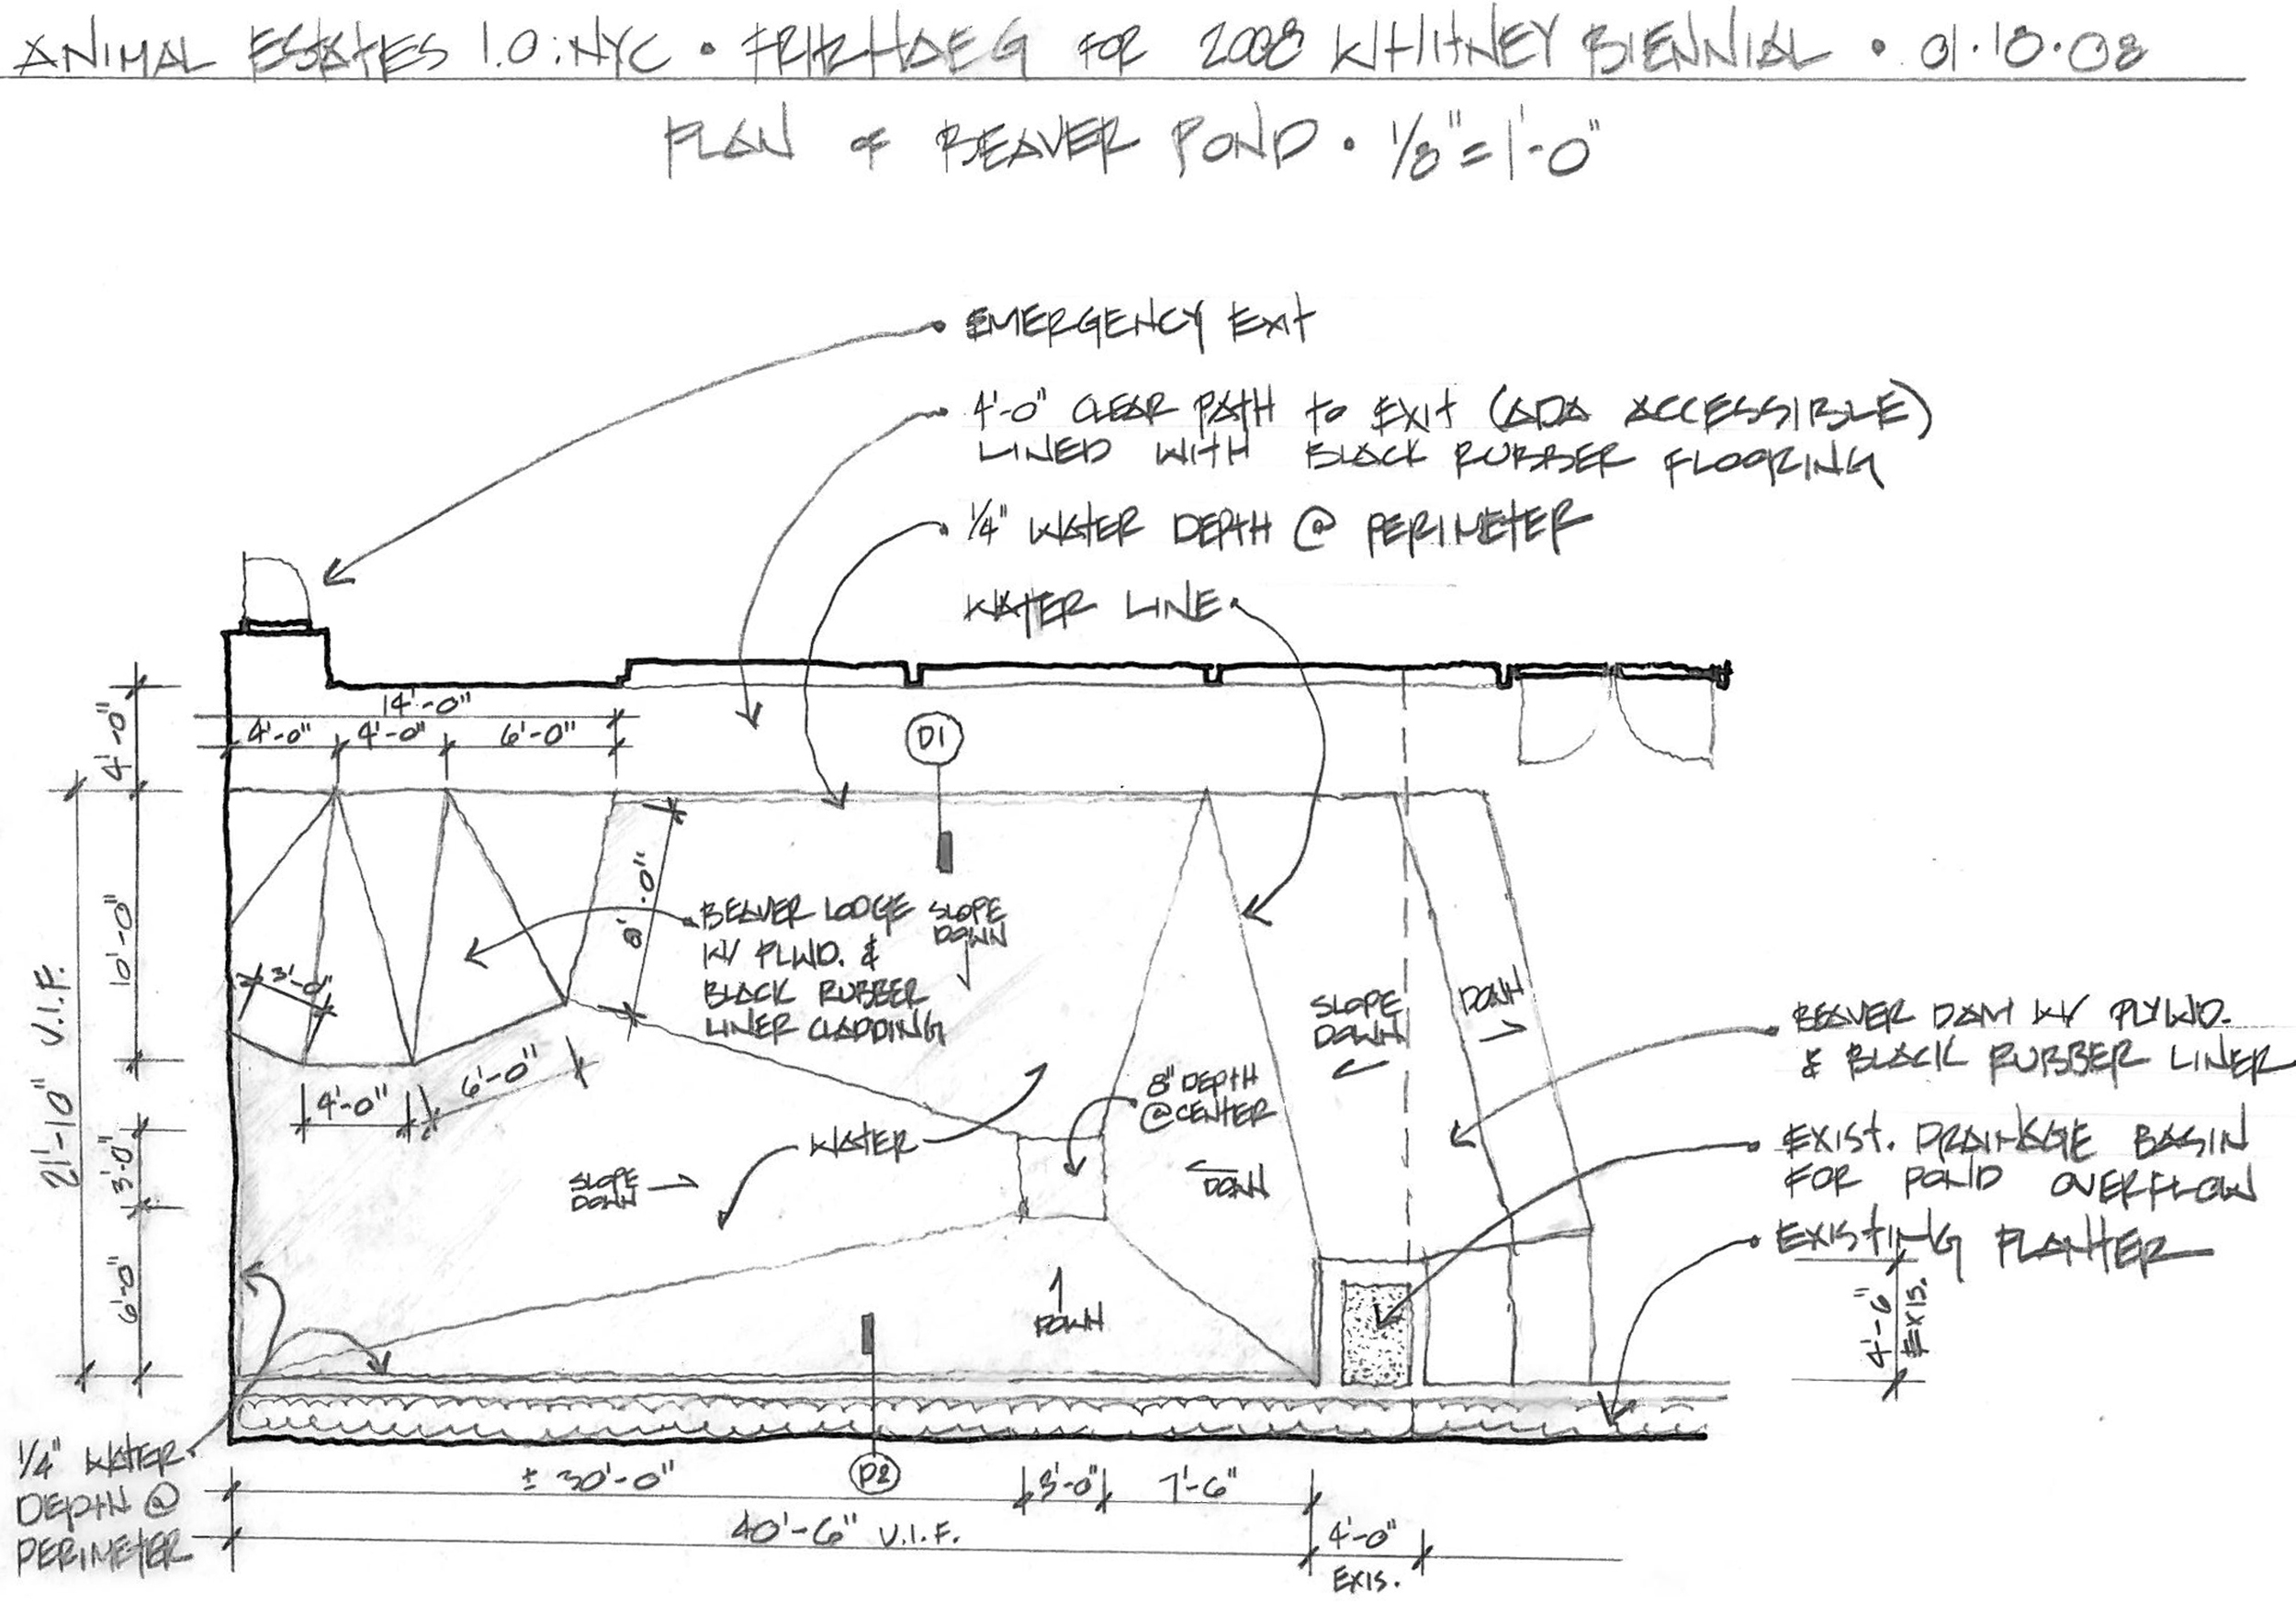 ANIMAL ESTATES 1.0: NYC • FRITZ HAEG FOR 2008 WHITNEY BIENNIAL • 01.10.08
PLAN @ BEAVER POND • 1/8" = 1'-0"
EMERGENCY EXIT
4'-0" CLEAR PATH to EXIT (ADA ACCESSIBLE)
LINED WITH BLACK RUBBER FLOORING
1/4" WATER DEPTH @ PERIMETER
WATER LINE
14'-0"
4'-0" 4'-0" 6'-0"
4'-0"
D1
8'-0"
BEAVER LODGE
W/ PLWD. &
BLACK RUBBER
LINER CLADDING
SLOPE
DOWN
10'-0"
21'-10" V.I.F.
3'-0"
SLOPE
DOWN
DOWN
BEAVER DAM W/ PLYWD.
& BLACK RUBBER LINER
4'-0"
6'-0"
8" DEPTH
@ CENTER
EXIST. DRAINAGE BASIN
FOR POND OVERFLOW
WATER
3'-0"
SLOPE
DOWN
DOWN
EXISTING PLANTER
6'-0"
DOWN
4'-6"
EXIS.
1/4" WATER
DEPTH @
PERIMETER
± 30'-0"
D2
3'-0"
7'-6"
40'-6" V.I.F.
4'-0"
EXIS.